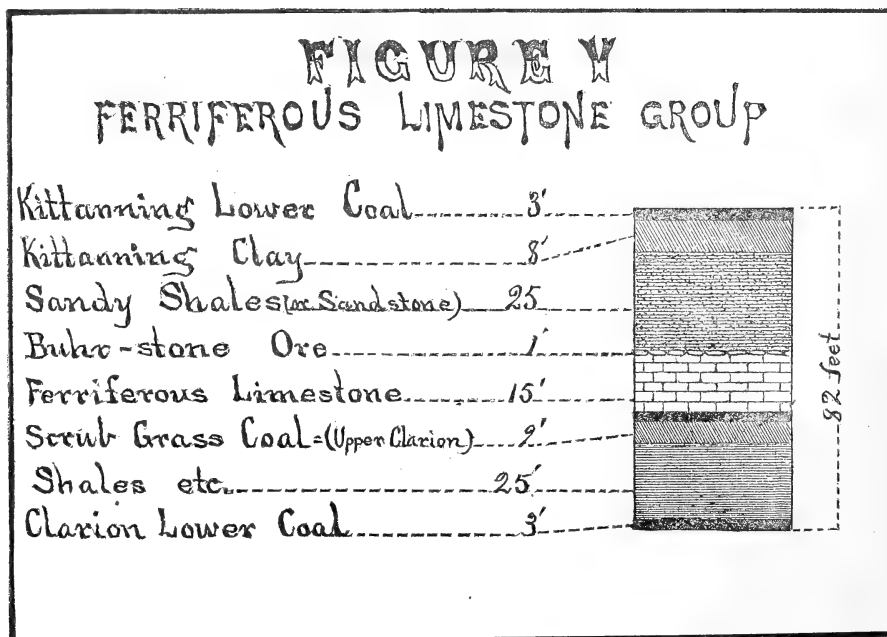 FIGURE V
FERRIFEROUS LIMESTONE GROUP
Kittanning Lower Coal 3'
Kittanning Clay 8'
Sandy Shales (or Sandstone) 25
Buhr-stone Ore 1'
Ferriferous Limestone 15'
Scrub Grass Coal = (Upper Clarion) 2'
Shales etc. 25'
Clarion Lower Coal 3'
82 feet